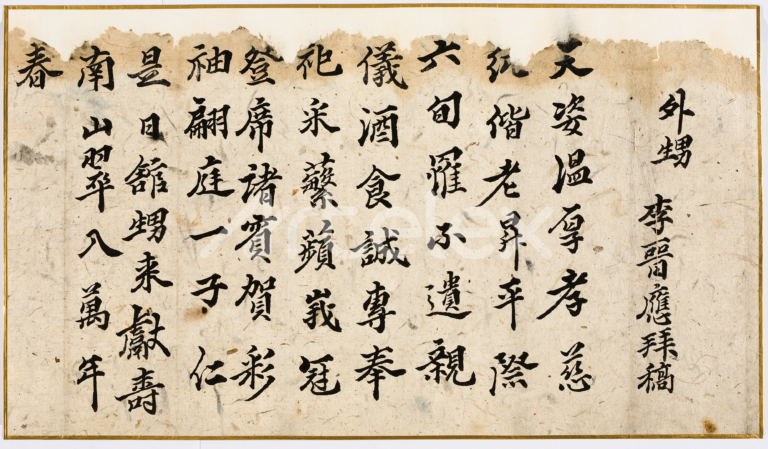 外甥 李晉應拜稿
天姿温厚孝慈
純偕老昇平際
六旬罹不遺親
儀酒食誠專奉
祀采蘩蘋峩冠
登席諸賓賀彩
袖翩庭一子仁
是日舘甥来獻壽
南山翠入萬年
春